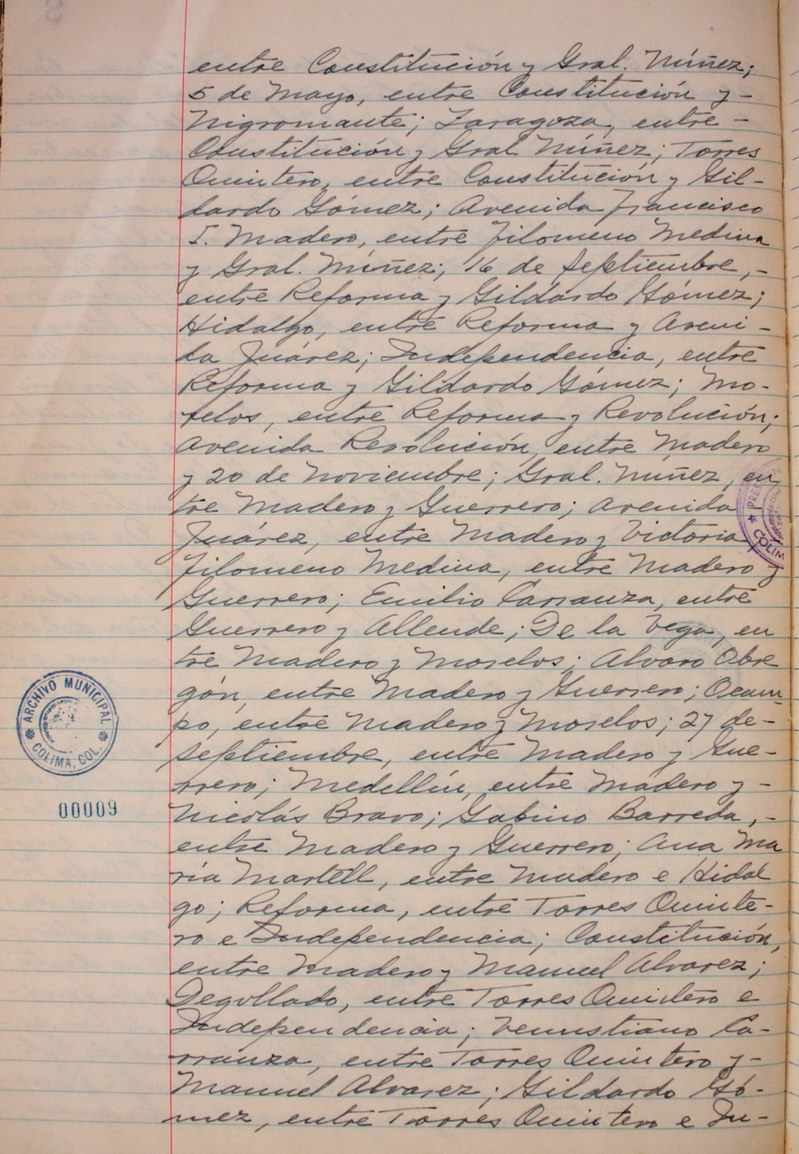 entre Constitución y Gral. Núñez;
5 de Mayo, entre Constitución y-
Nigromante; Zaragoza, entre-
Constitución y Gral Núñez; Torres
Quintero, entre Constitución y Gil-
dardo Gómez; Avenida Francisco
I. Madero, entre Filomeno Medina
y Gral. Núñez; 16 de septiembre,-
entre Reforma y Gildardo Gómez;
Hidalgo, entre Reforma y Aveni-
da Juárez; Independencia, entre
Reforma y Gildardo Gómez; Mo-
relos, entre Reforma y Revolución;
Avenida Revolución, entre Madero
y 20 de Noviembre; Gral. Núñez, en
tre Madero y Guerrero; Avenida
Juárez, entre Madero y Victoria;
Filomeno Medina, entre Madero y
Guerrero; Emilio Carranza, entre
Guerrero y Allende; De la Vega, en
tre Madero y Morelos; Alvaro Obre
gón, entre Madero y Guerrero; Ocam-
po, entre Madero y Morelos; 27 de-
septiembre, entre Madero y Gue-
rrero; Medellín, entre Madero y-
Nicolás Bravo; Gabino Barreda,-
entre Madero y Guerrero; Ana Ma
ría Martell, entre Madero e Hidal
go; Reforma, entre Torres Quinte-
ro e Independencia; Constitución,
entre Madero y Manuel Alvarez;
Degollado, entre Torres Quintero e
Independencia; Venustiano Ca-
rranza, entre Torres Quintero y-
Manuel Alvarez; Gildardo Gó-
mez, entre Torres Quintero e In-
ARCHIVO MUNICIPAL
COLIMA, COL.
00009
PRES
COLIM